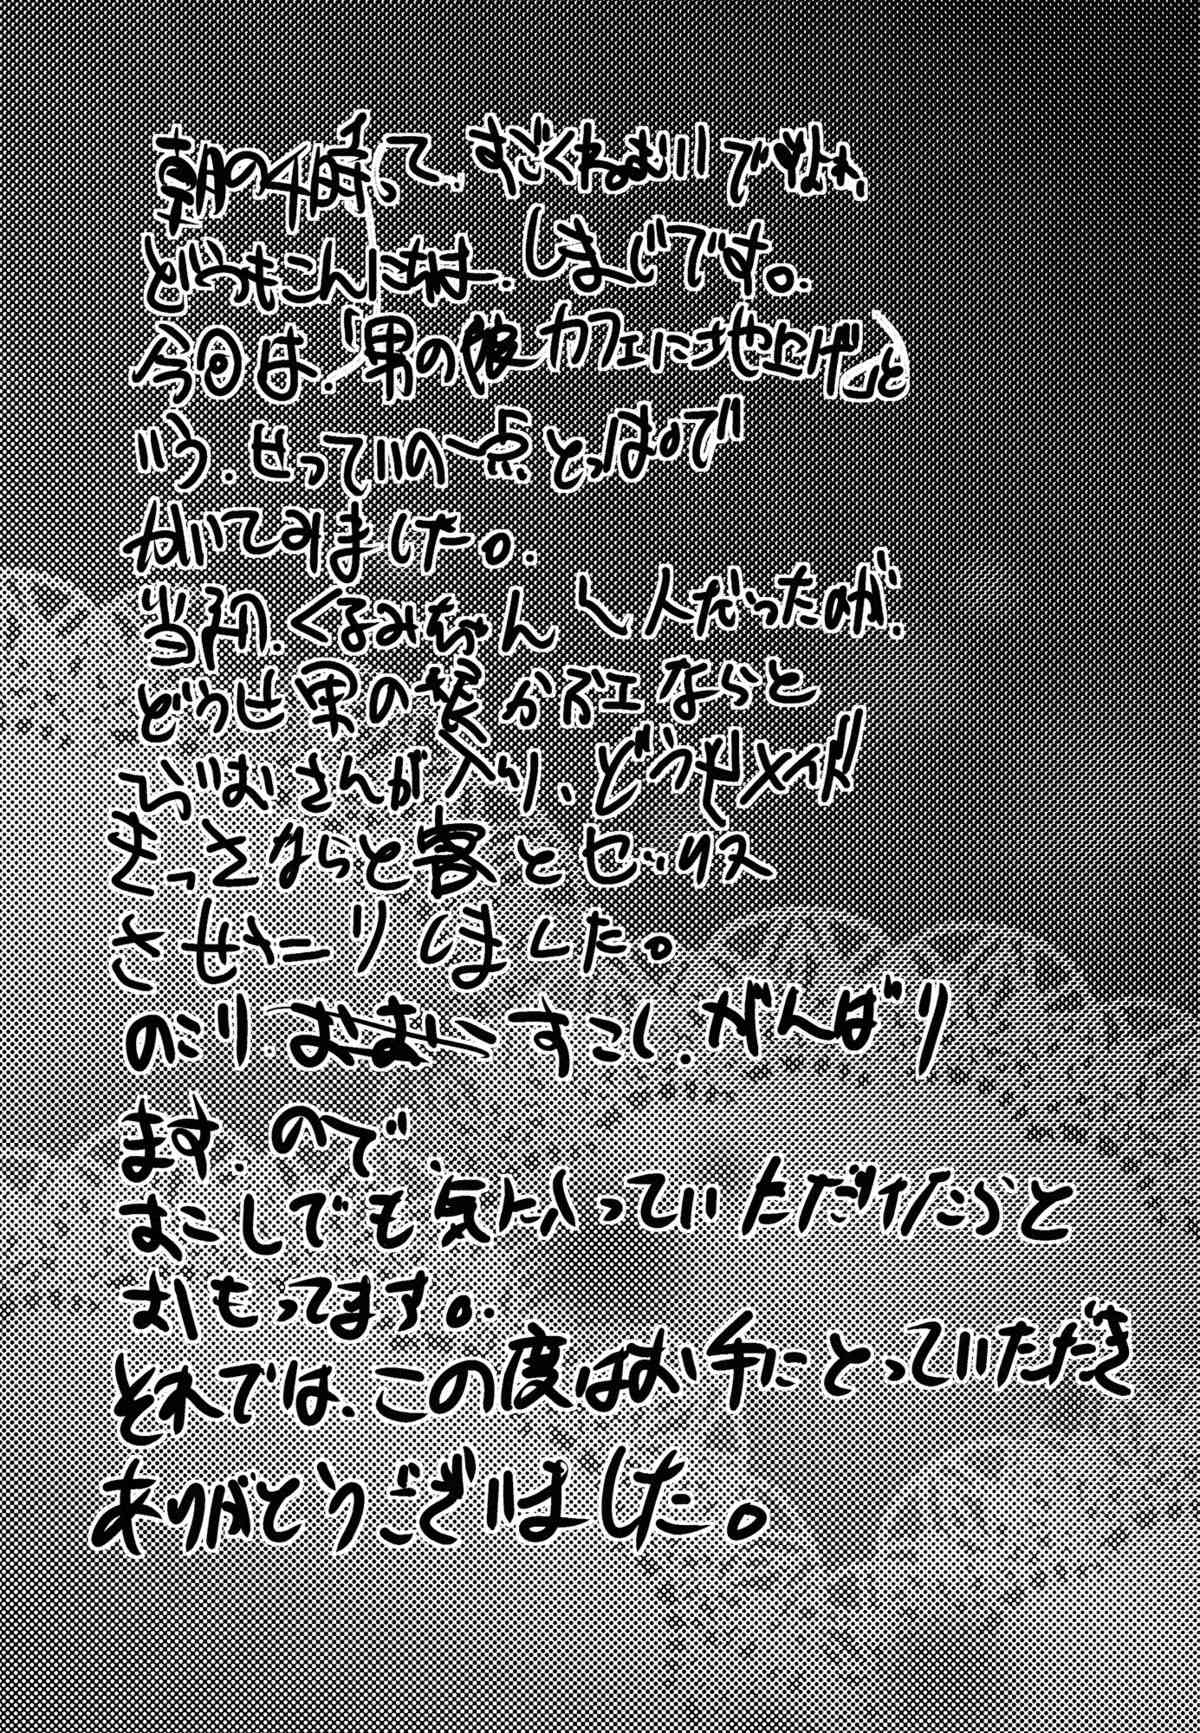 朝の4時って、すごくねむいですよね、
どうもこんにちは、しまじです。
今回は、「男の娘カフェに地上げ」と
いう、せっていの一点とっぱで
かいてみました。
当初、くるみちゃん1人だったのが、
どうせ男の娘かふェならと
おじさんが入り、どうせメイド
きっさならと客とセックス
させたりしました。
のこり、すこし、がんばり
ます、ので、
すこしでも気に入っていただけたらと
おもってます。
それでは、この度はお手にとっていただき
ありがとうございました。